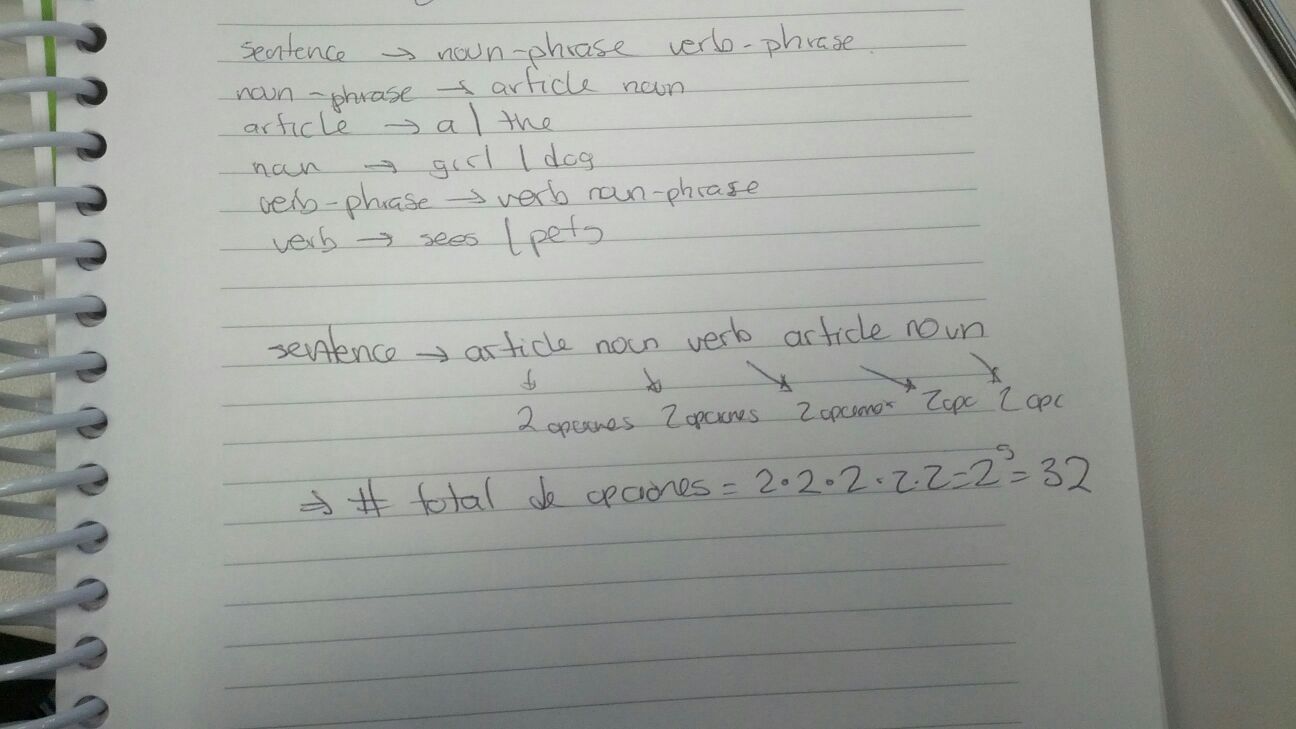 sentence → noun-phrase verb-phrase.
noun-phrase → article noun
article → a | the
noun → girl | dog
verb-phrase → verb noun-phrase
verb → sees | pets
sentence → article noun verb article noun
2 opciones 2 opciones 2 opciones 2 opc 2 opc
⇒ # total de opciones = 2·2·2·2·2=2⁵=32